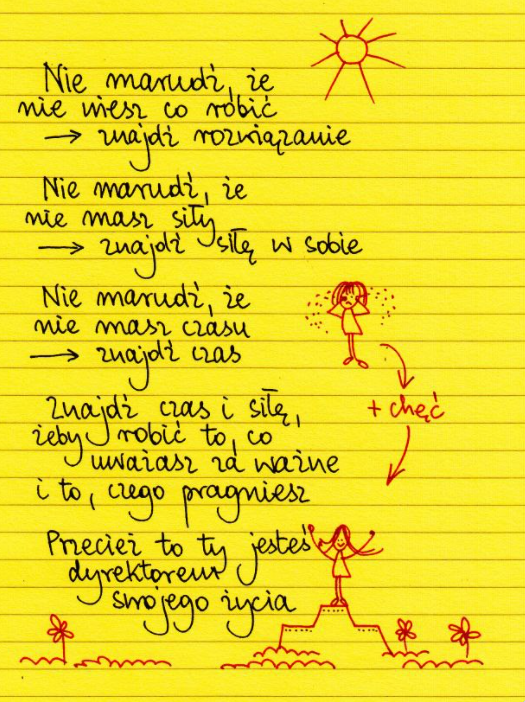 Nie marudź, że
nie wiesz co robić
→ znajdź rozwiązanie
Nie marudź, że
nie masz siły
→ znajdź siłę w sobie
Nie marudź, że
nie masz czasu
→ znajdź czas
Znajdź czas i siłę,
żeby robić to, co
uważasz za ważne
i to, czego pragniesz
+ chęć
Przecież to ty jesteś
dyrektorem
swojego życia